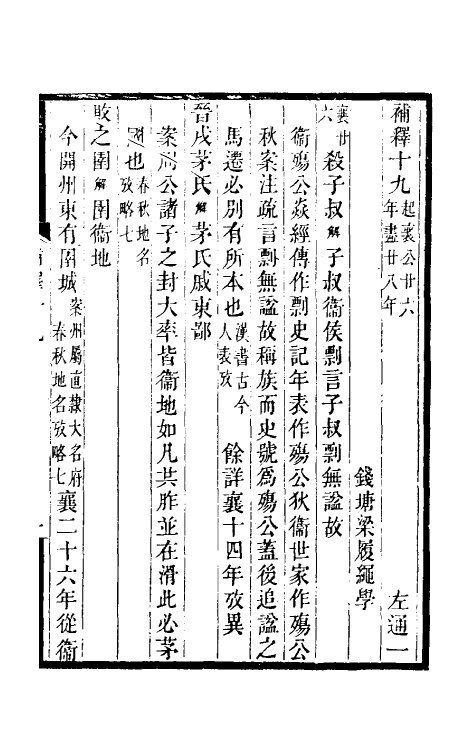 補釋十九 起襄公廿六年盡廿八年 左通一
錢塘梁履繩學
襄廿六 殺子叔 解 子叔衞侯剽言子叔剽無諡故
衞殤公焱經傳作剽史記年表作殤公狄衞世家作殤公
秋案注疏言剽無諡故稱族而史號爲殤公蓋後追諡之
馬遷必別有所本也 漢書古今人表攷 餘詳襄十四年攷異
晉戍茅氏 解 茅氏戚東鄙
案周公諸子之封大率皆衞地如凡共胙並在滑此必茅
國也 春秋地名攷略七
敗之圉 解 圉衞地
今開州東有圉城 案州屬直隸大名府春秋地名攷略七 襄二十六年從衞